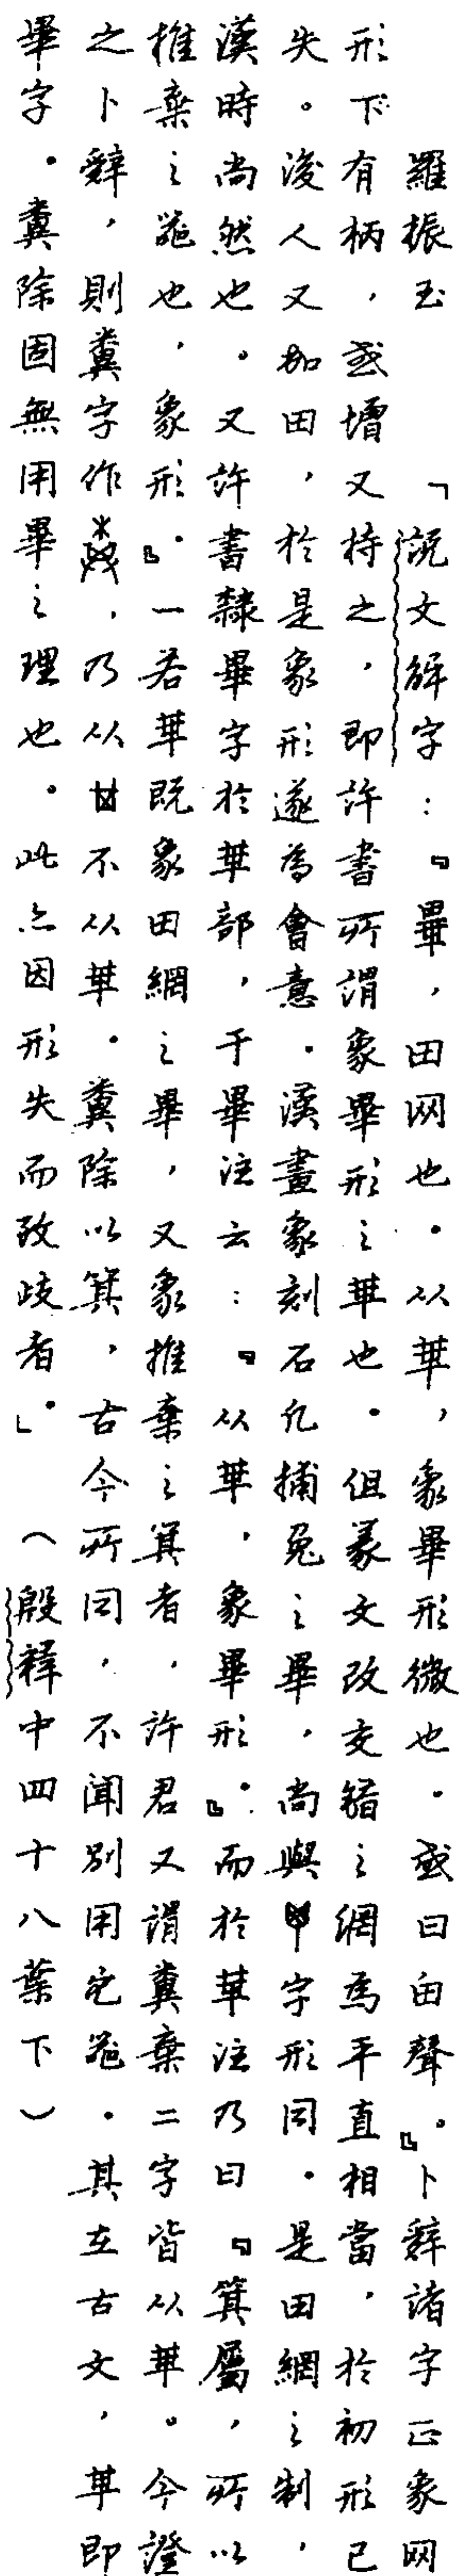 羅振玉　「説文解字：『畢，田网也。从𠦒，象畢形微也。或曰由聲。』卜辭諸字正象网
形下有柄，或增又持之，即許書所謂象畢形之𠦒也。但篆文改交錯之網爲平直相當，於初形已
失。後人又加田，於是象形遂爲會意。漢畫象刻石凡捕兔之畢，尚與字形同。是田網之制，
漢時尚然也。又許書隸畢字於𠦒部，于畢注云：『从𠦒，象畢形。』而於𠦒注乃曰『箕屬，所以
推棄之器也，象形。』一若𠦒既象田網之畢，又象推棄之箕者，許君又謂糞棄二字皆从𠦒。今證
之卜辭，則糞字作，乃从𠀠不从𠦒。糞除以箕，古今所同，不聞別用它器。其在古文，𠦒即
畢字。糞除固無用畢之理也。此亦因形失而致歧者。」（殷釋中四十八葉下）